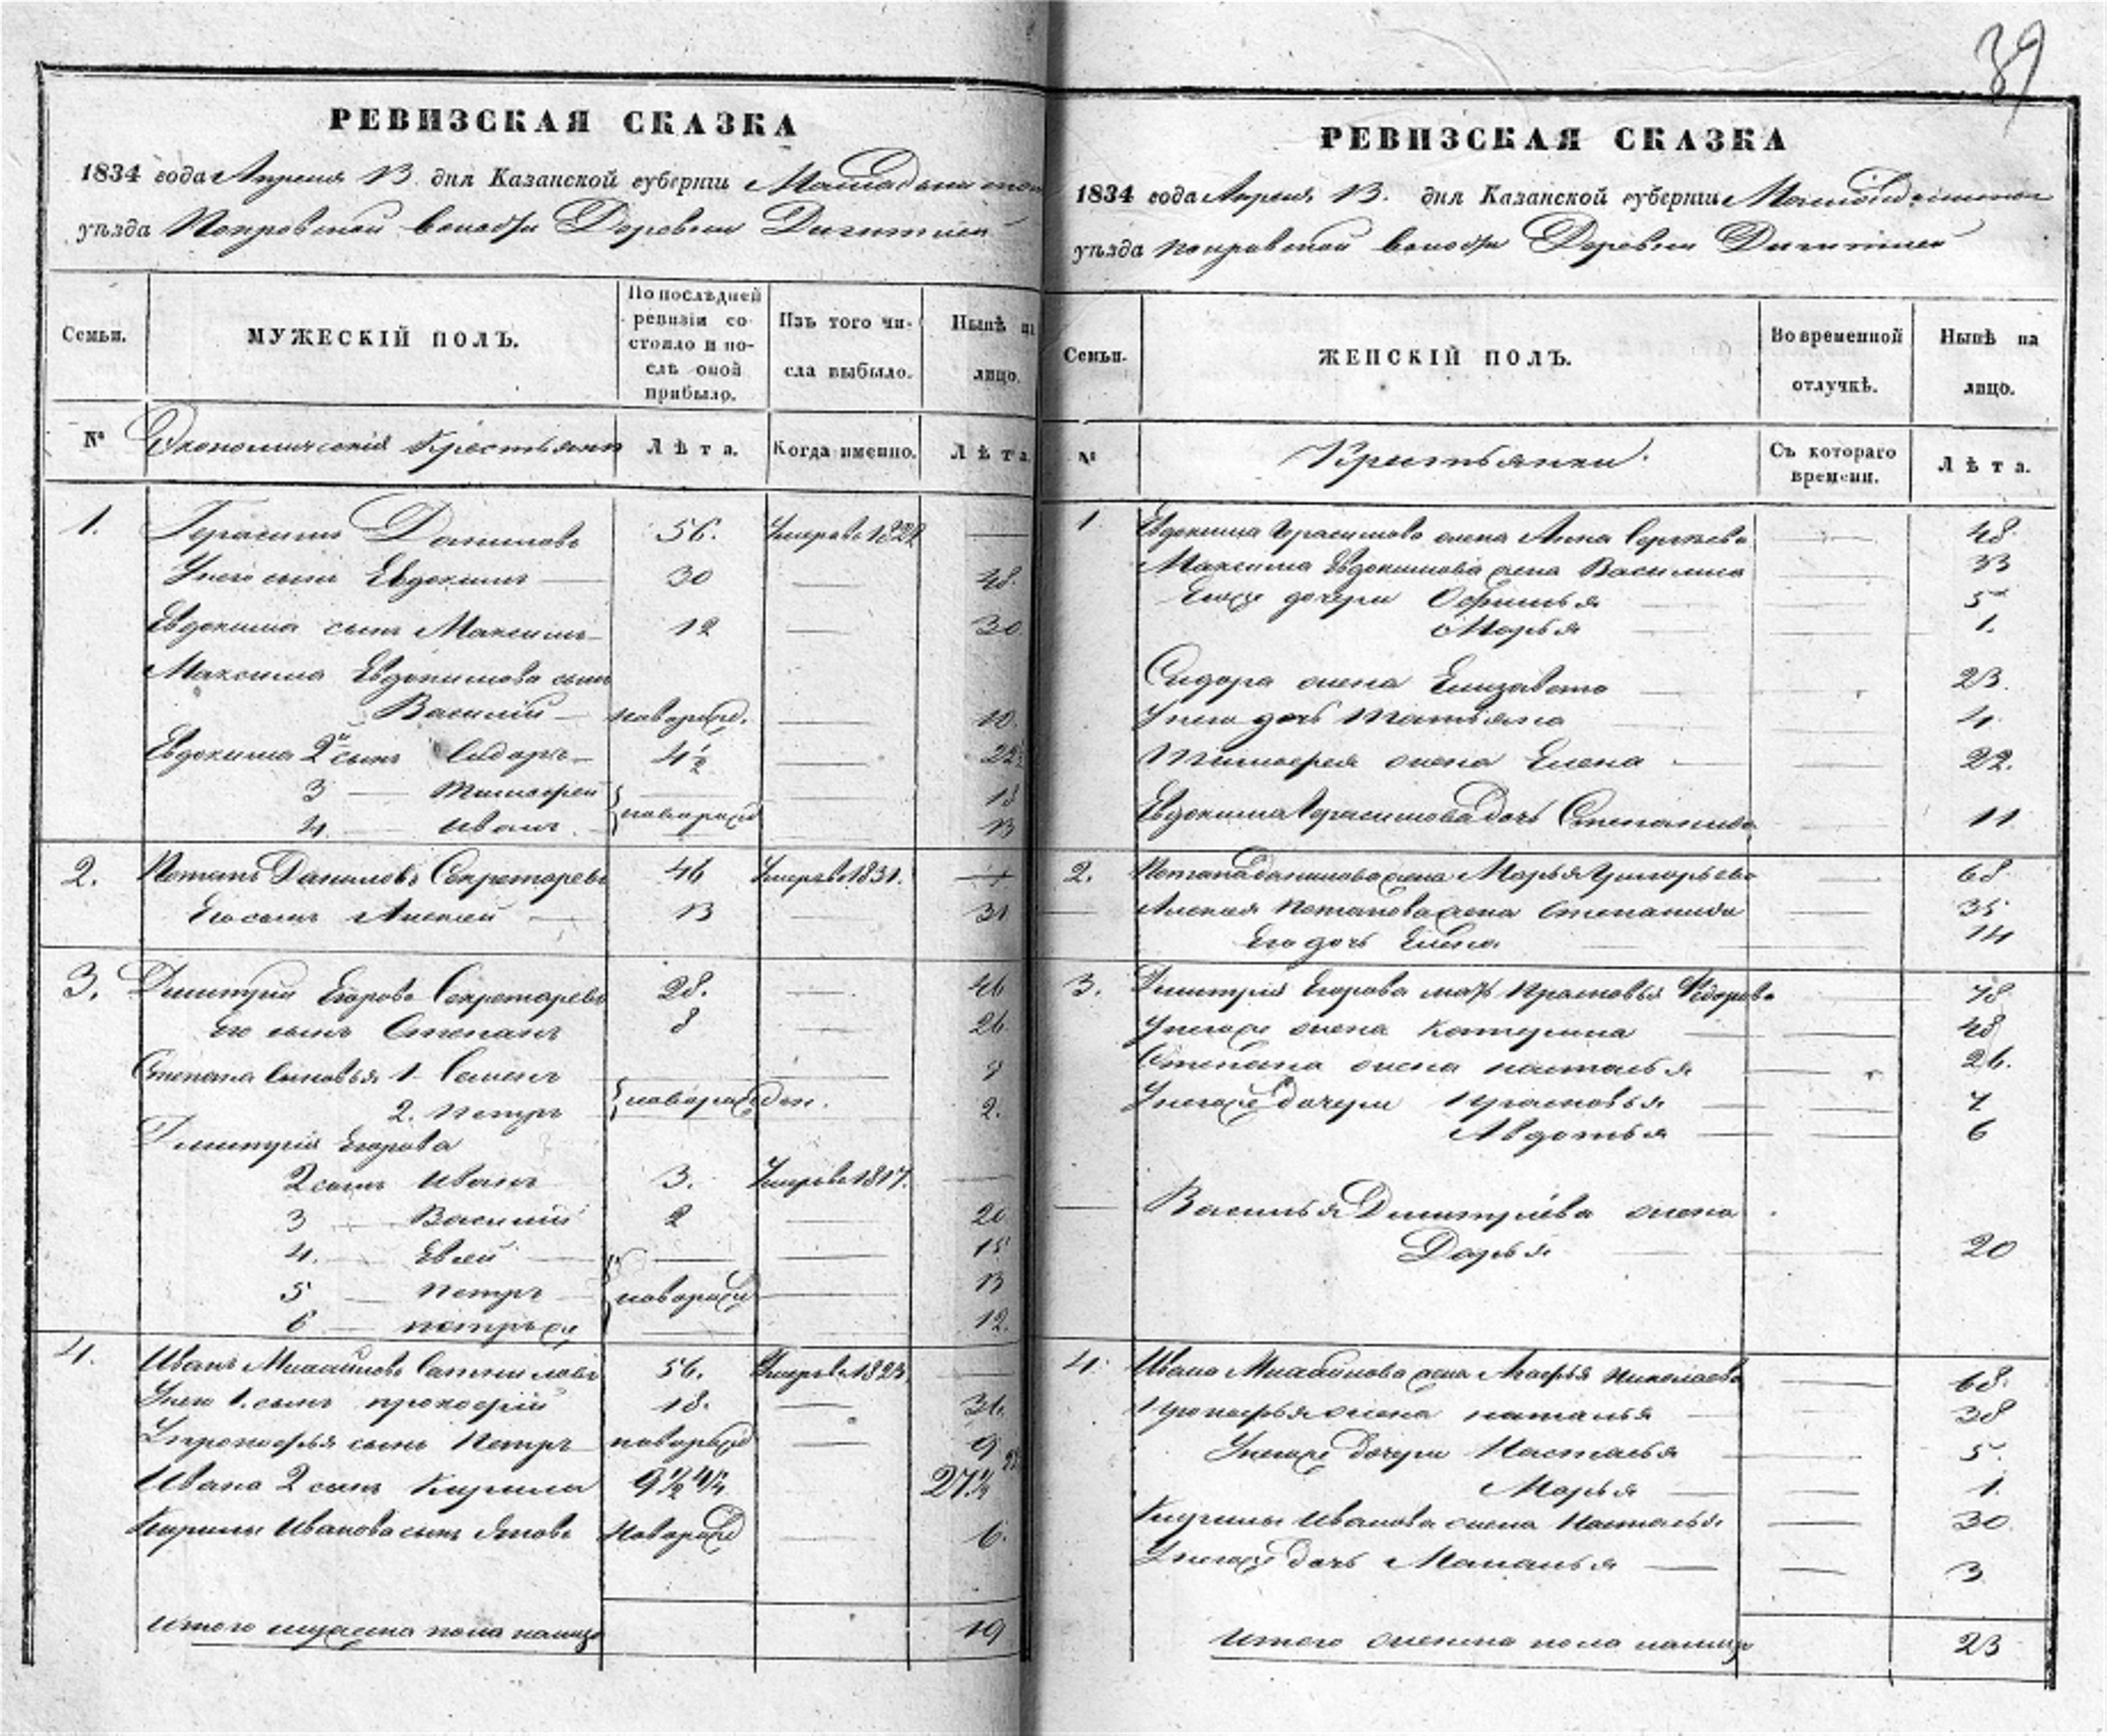 39
РЕВИЗСКАЯ СКАЗКА
1834 года Апреля 13 дня Казанской губернии
уѣзда Покровской волости Деревни
Семьи.
МУЖЕСКІЙ ПОЛЪ.
По послѣдней ревизіи состояло и послѣ оной прибыло.
Изъ того числа выбыло.
Нынѣ на лицо.
№ Экономическія Крестьяни
Лѣта. Когда именно. Лѣта
1. Герасимъ Даниловъ 56. Умеръ въ 182
У него сынъ Евдокимъ — 30 — 48.
Евдокима сынъ Максимъ 12 — 30
Максима Евдокимова сынъ
Василій — новорожд. — 10.
Евдокима 2й сынъ Сидоръ 4½ — 22½
3 — Тимофей — 18
4. — Иванъ новорожд — 13
2. Потапъ Даниловъ Секретаревъ 46 Умеръ въ 1831. —
Его сынъ Алексей — 13 — 31
3. Димитрій Егоровъ Секретаревъ 28. — 46
Его сынъ Степанъ 8 — 26
Степана сыновья 1. Семенъ
2. Петръ новорожден. 2.
Димитрія Егорова
2 сынъ Иванъ 3. Умеръ въ 1817. —
3 — Василій 2 — 20
4. — Евсей — 15
5 — Петръ новорожд — 13
6 — Петръ же — 12.
4. Иванъ Михайловъ 56. Умеръ въ 1823 —
У него 1. сынъ Прокофій 18. — 36.
У Прокофья сынъ Петръ новорожд — 9
Ивана 2 сынъ Кирила 9½ 27½
Кирилы Иванова сынъ Яковъ новорожд — 6.
Итого мужеска пола налицо 19
РЕВИЗСКАЯ СКАЗКА
1834 года Апреля 13. дня Казанской губерніи
уѣзда Покровской волости Деревни
Семьи.
ЖЕНСКІЙ ПОЛЪ.
Во временной отлучкѣ.
Нынѣ на лицо.
№ Крестьянки.
Съ котораго времени.
Лѣта.
1 Евдокима Герасимова жена Анна Сергеева — 48
Максима Евдокимова жена Василиса — 33
Его же дочери Офимья — 5
Марья — 1.
Сидора жена Елизавета — 23.
У него дочь Татьяна — 4.
Тимофея жена Елена — 22.
Евдокима Герасимова дочь Степанида — 11
2. Потапа Данилова жена Марья Григорьева — 68
Алексея Потапова жена Степанида — 35
Его дочь Елена — 14
3. Димитрія Егорова мать Прасковья Федорова — 78
У него же жена Катерина — 48
Степана жена Наталья — 26.
У него же дочери Прасковья — 7
Авдотья — 6
Василья Димитріева жена
Дарья — 20
4. Ивана Михайлова жена Агафья Николаева — 68.
Прокофья жена Наталья — 38
У него же дочери Настасья — 5.
Марья — 1.
Кирилы Иванова жена Настасья — 30.
У него же дочь Маланья — 3
Итого женска пола налицо 23